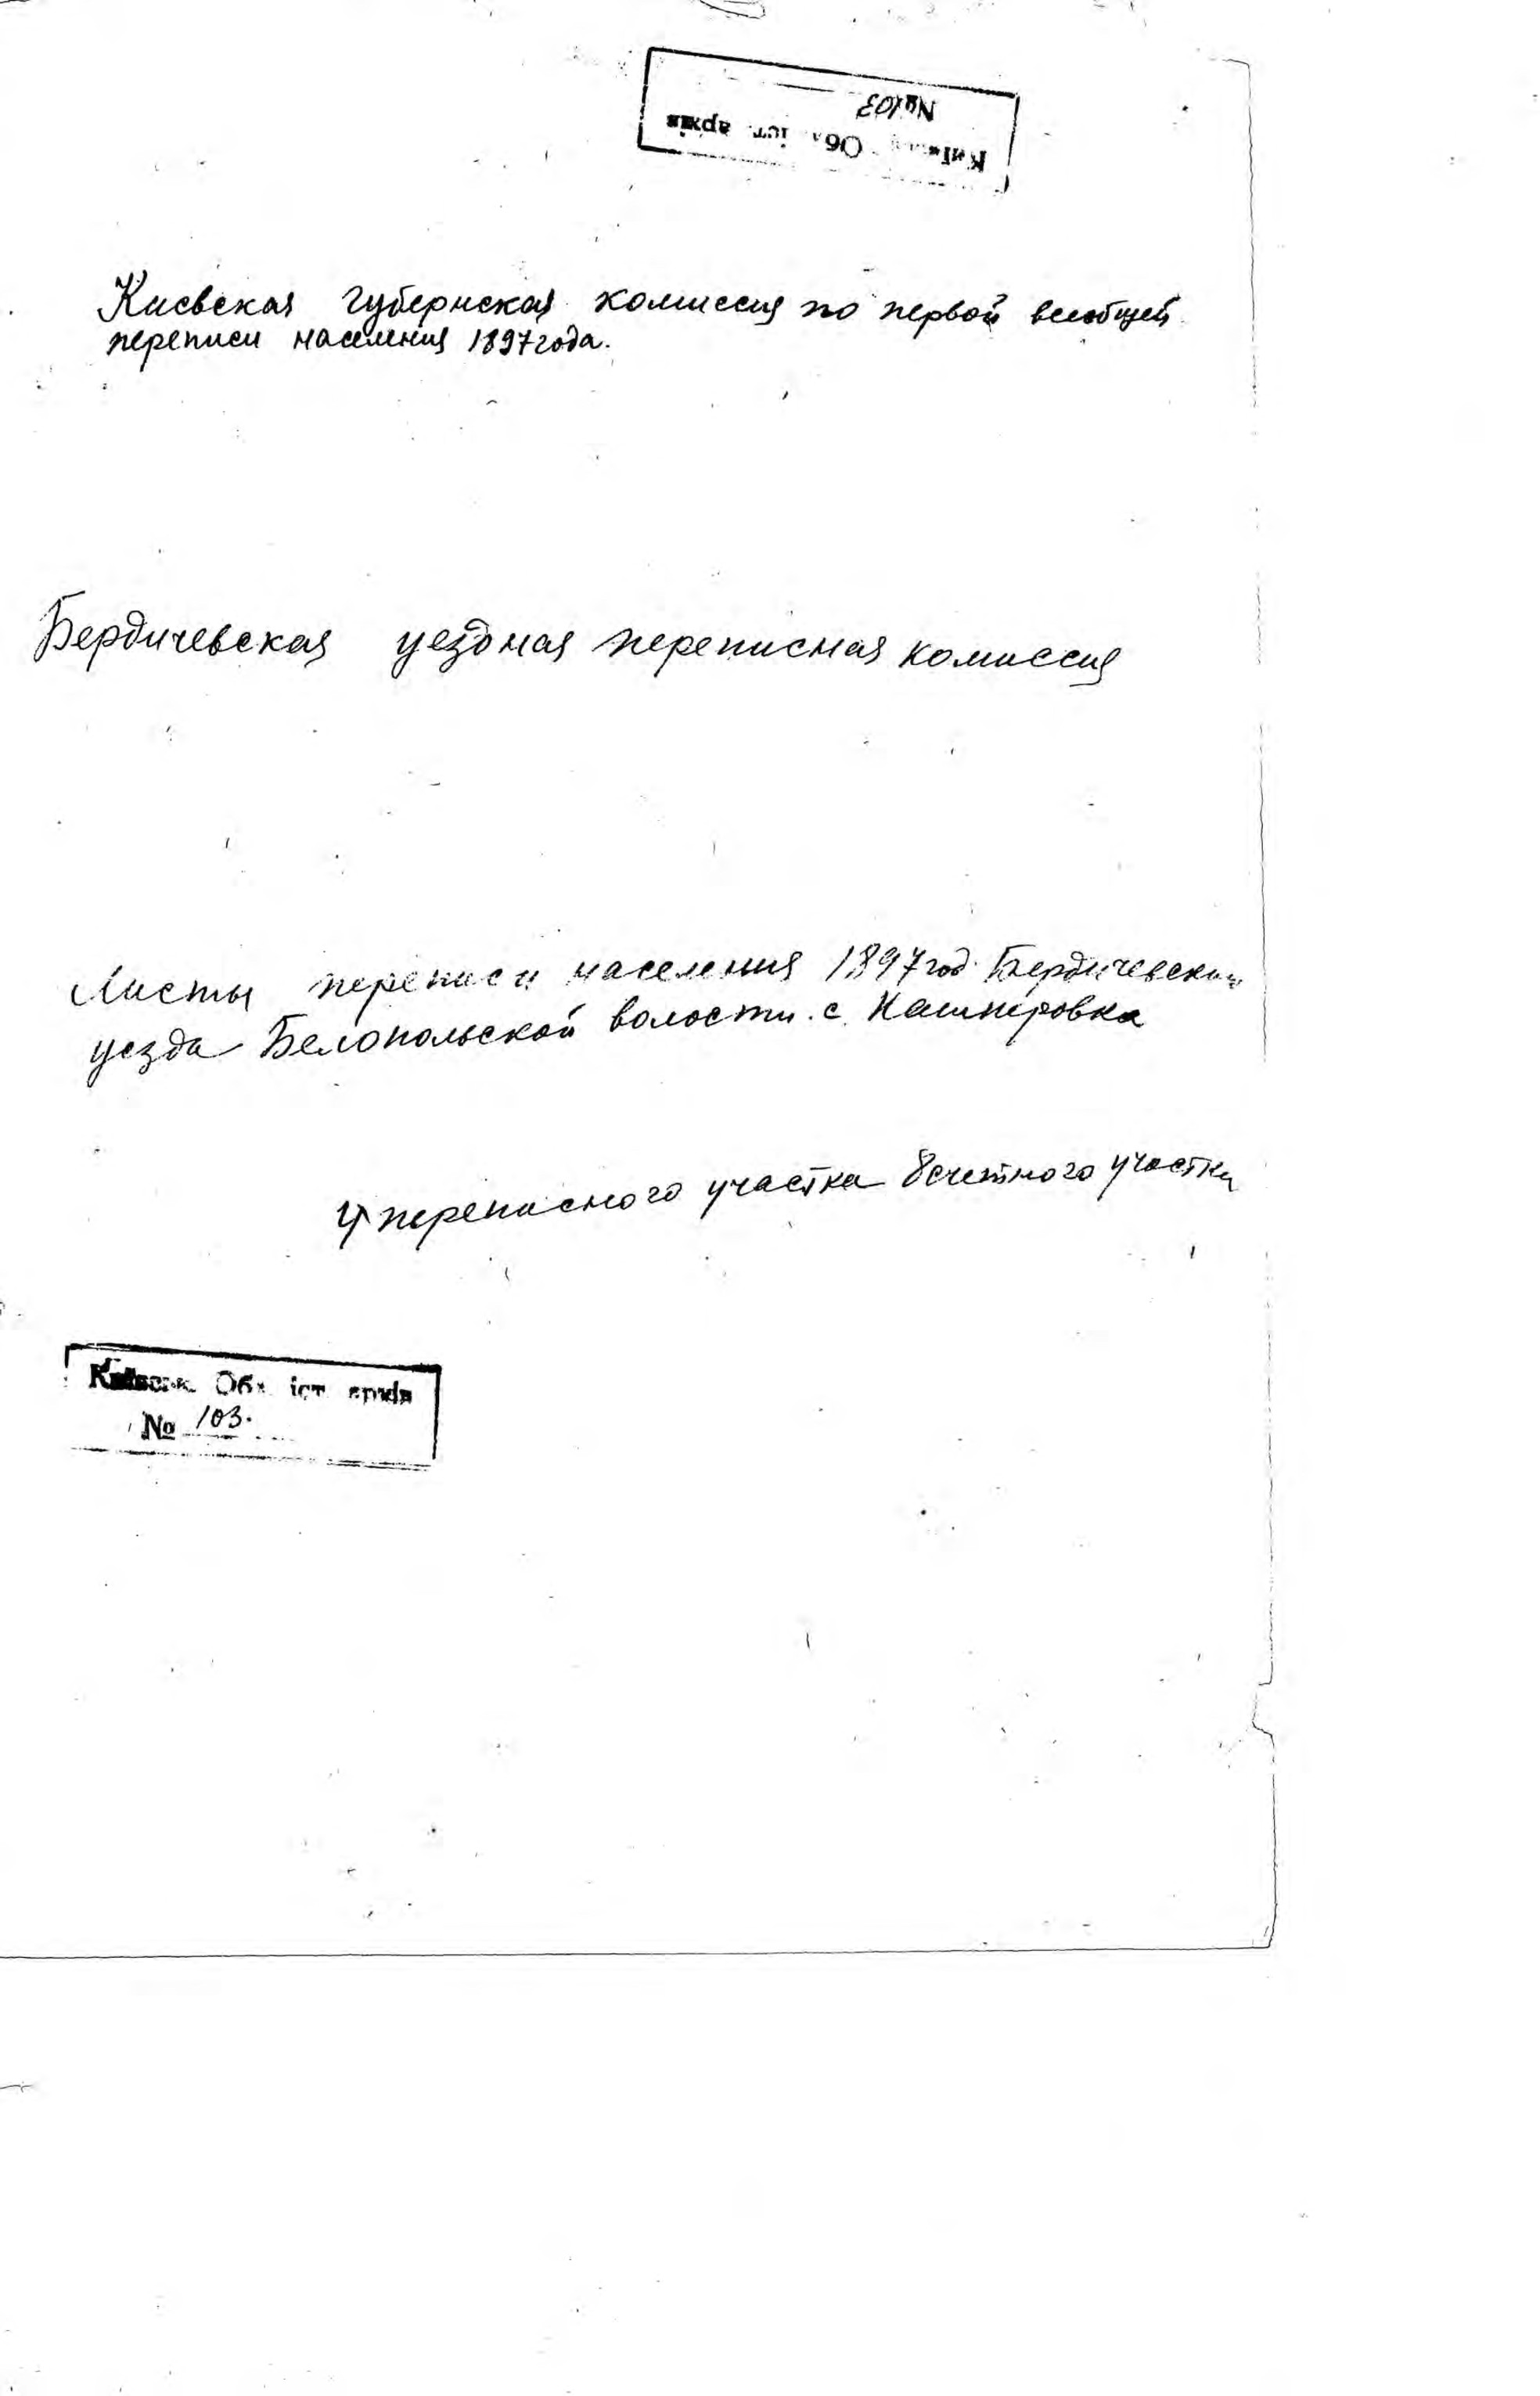 № 103
Київськ. Обл. іст. архів
Киевская губернская комиссия по первой всеобщей
переписи населения 1897 года.
Бердичевская уездная переписная комиссия
Листы переписи населения 1897 год. Бердичевский
уезда Белопольской волости. с. Кашперовка
4 переписного участка 8 счетного участка
Київськ. Обл. іст. архів
№ 103.